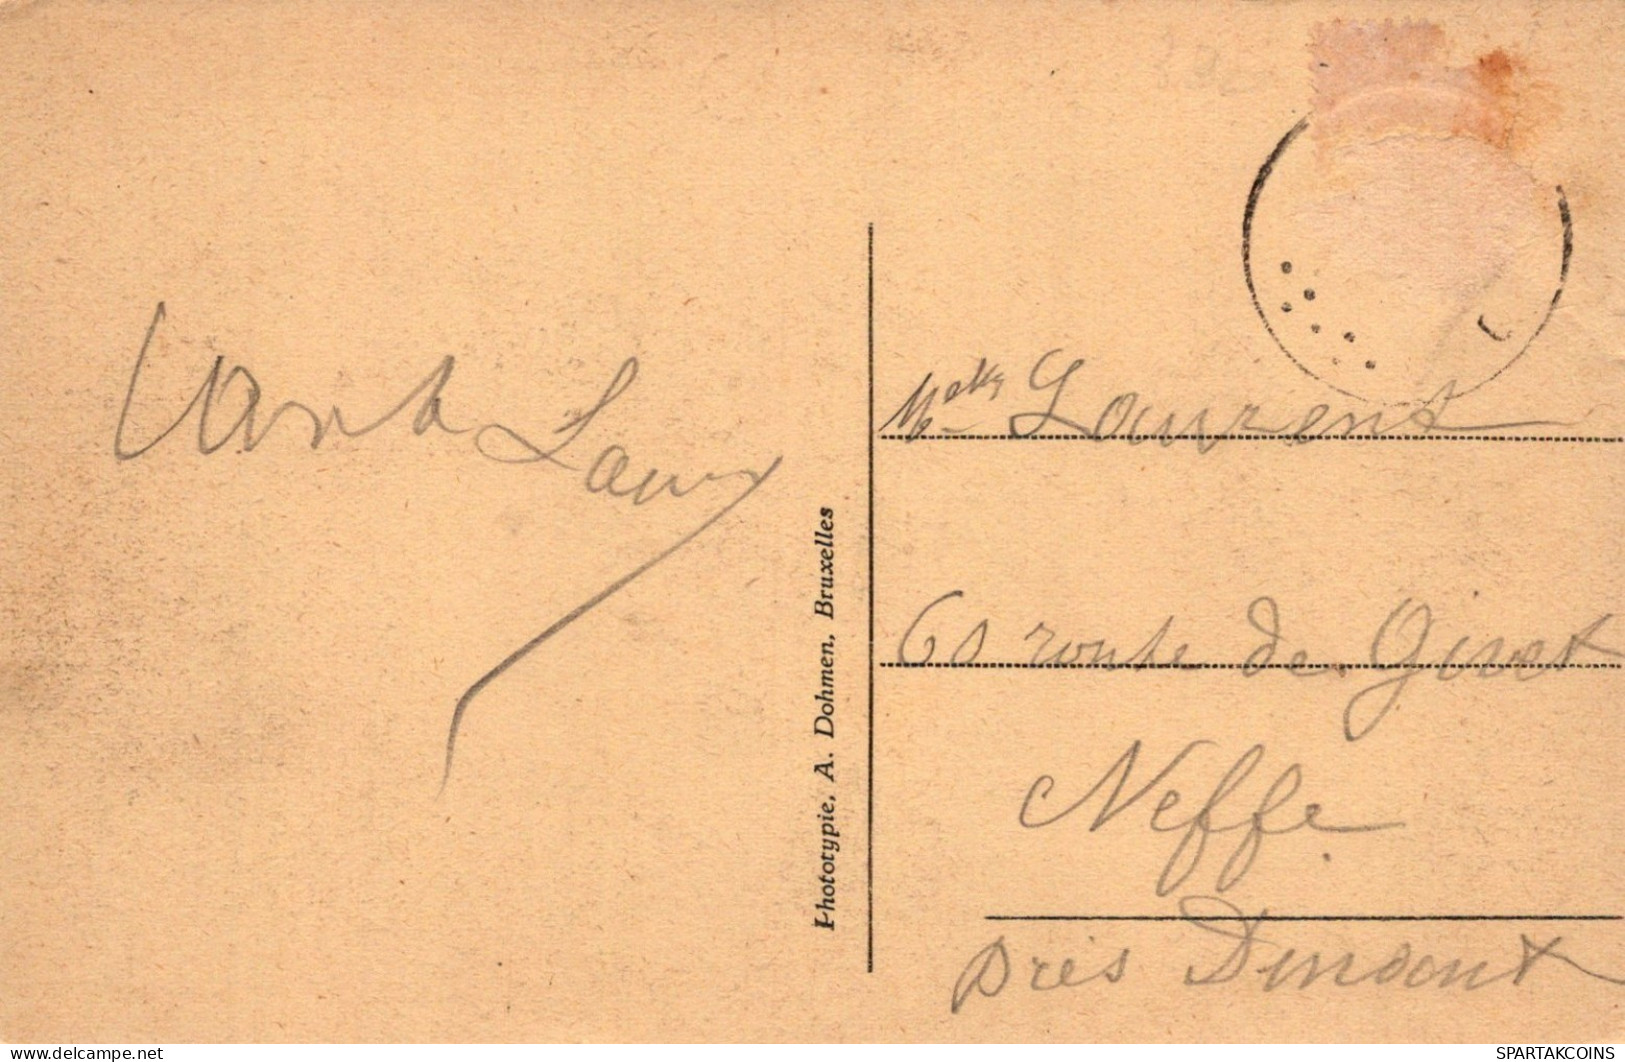 Phototypie, A. Dohmen, Bruxelles
Melle Laurent
60 route de Givet
Neffe
près Dinant
www.delcampe.net
SPARTAKCOINS